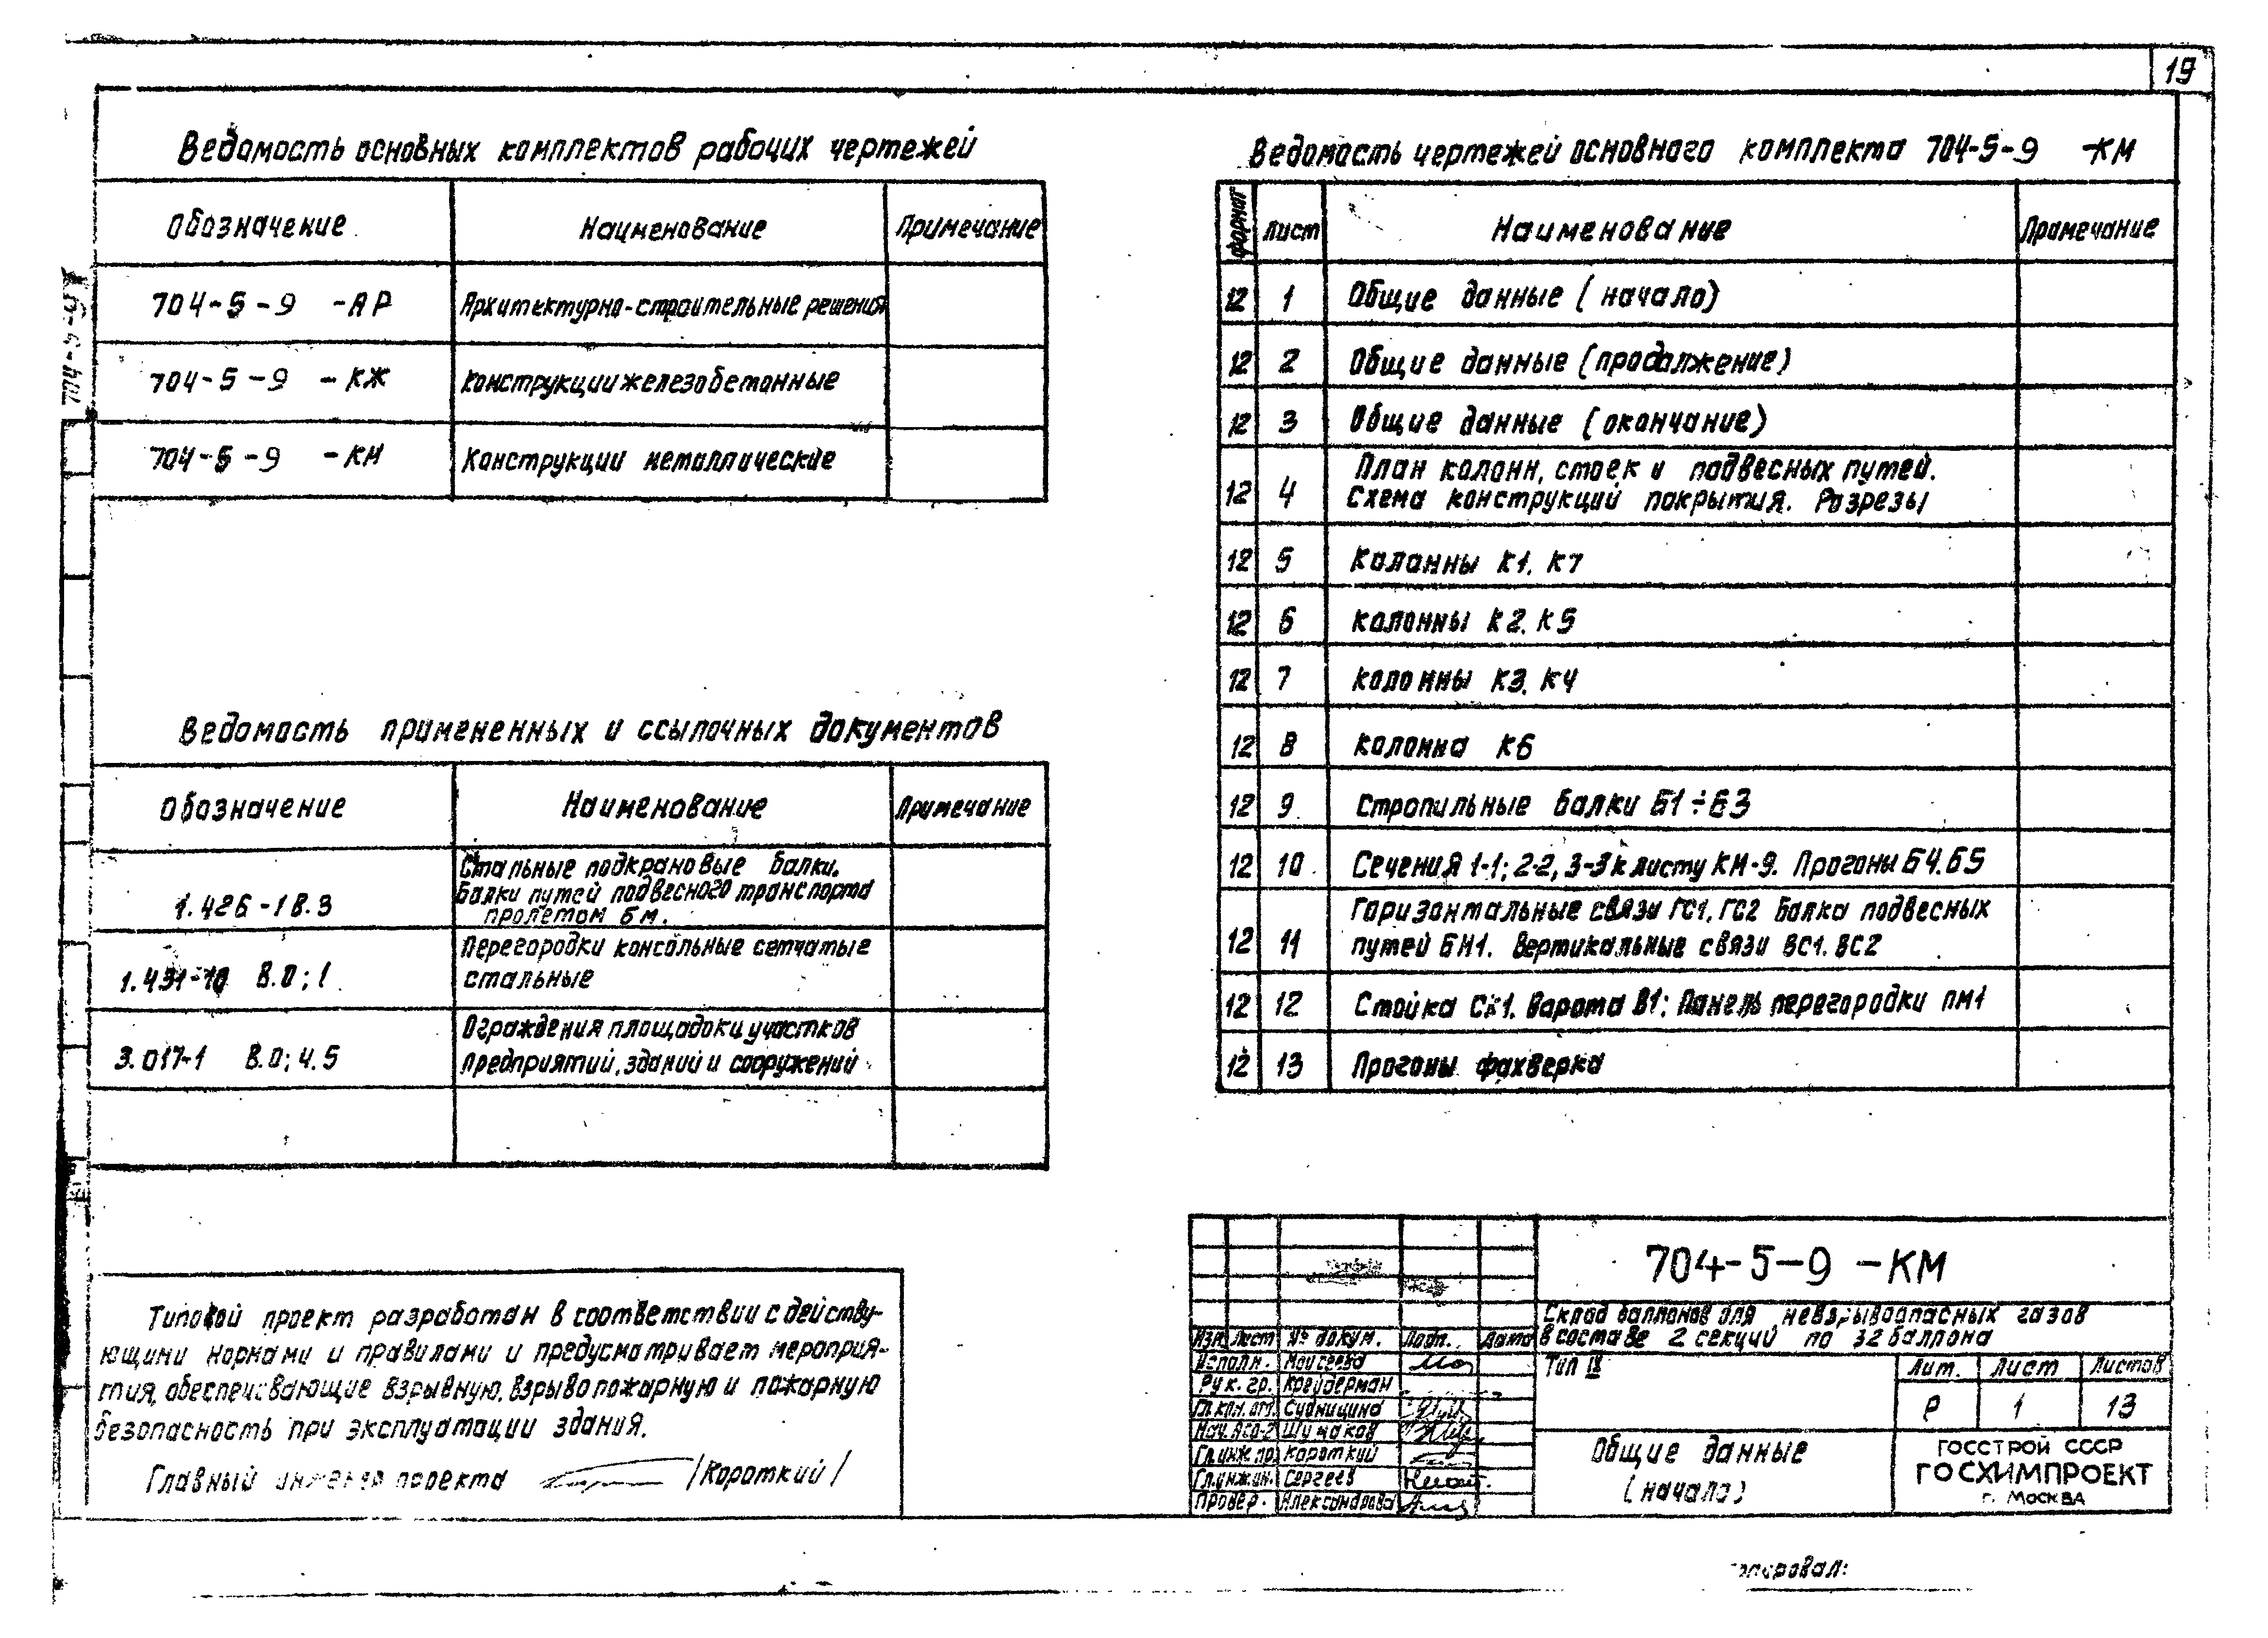 19
Ведомость основных комплектов рабочих чертежей
Обозначение Наименование Примечание
704-5-9 -АР Архитектурно-строительные решения
704-5-9 -КЖ Конструкции железобетонные
704-5-9 -КМ Конструкции металлические
Ведомость примененных и ссылочных документов
Обозначение Наименование Примечание
Стальные подкрановые балки.
Балки путей подвесного транспорта
1.426-1 В.3 пролетом 6 м.
Перегородки консольные сетчатые
1.431-10 В.0; 1 стальные
Ограждения площадок и участков
3.017-1 В.0; 4.5 предприятий, зданий и сооружений
Типовой проект разработан в соответствии с действу-
ющими нормами и правилами и предусматривает мероприя-
тия, обеспечивающие взрывную, взрывопожарную и пожарную
безопасность при эксплуатации здания.
Главный инженер проекта /Короткий/
Ведомость чертежей основного комплекта 704-5-9 -КМ
формат Лист Наименование Примечание
12 1 Общие данные (начало)
12 2 Общие данные (продолжение)
12 3 Общие данные (окончание)
План колонн, стоек и подвесных путей.
12 4 Схема конструкций покрытия. Разрезы
12 5 Колонны К1. К7
12 6 Колонны К2. К5
12 7 Колонны К3. К4
12 8 Колонна К6
12 9 Стропильные балки Б1÷Б3
12 10 Сечения 1-1; 2-2, 3-3 к листу КМ-9. Прогоны Б4. Б5
Горизонтальные связи ГС1. ГС2 Балка подвесных
12 11 путей БМ1. Вертикальные связи ВС1. ВС2
12 12 Стойка СК1. Ворота В1; Панель перегородки ПМ1
12 13 Прогоны фахверка
704-5-9 -КМ
Склад баллонов для невзрывоопасных газов
в составе 2 секций по 32 баллона
Изм. Лист № докум. Подп. Дата
Исполн. Моисеева
Рук. гр. Крейдерман
Гл. кон. отд. Судницина
Нач. АСО-2 Шумаков
Гл. инж. пр. Короткий
Гл. инжин. Сергеев
Провер. Александрова
Тип Лит. Лист Листов
Р 1 13
Общие данные
(начало)
ГОССТРОЙ СССР
ГОСХИМПРОЕКТ
г. Москва